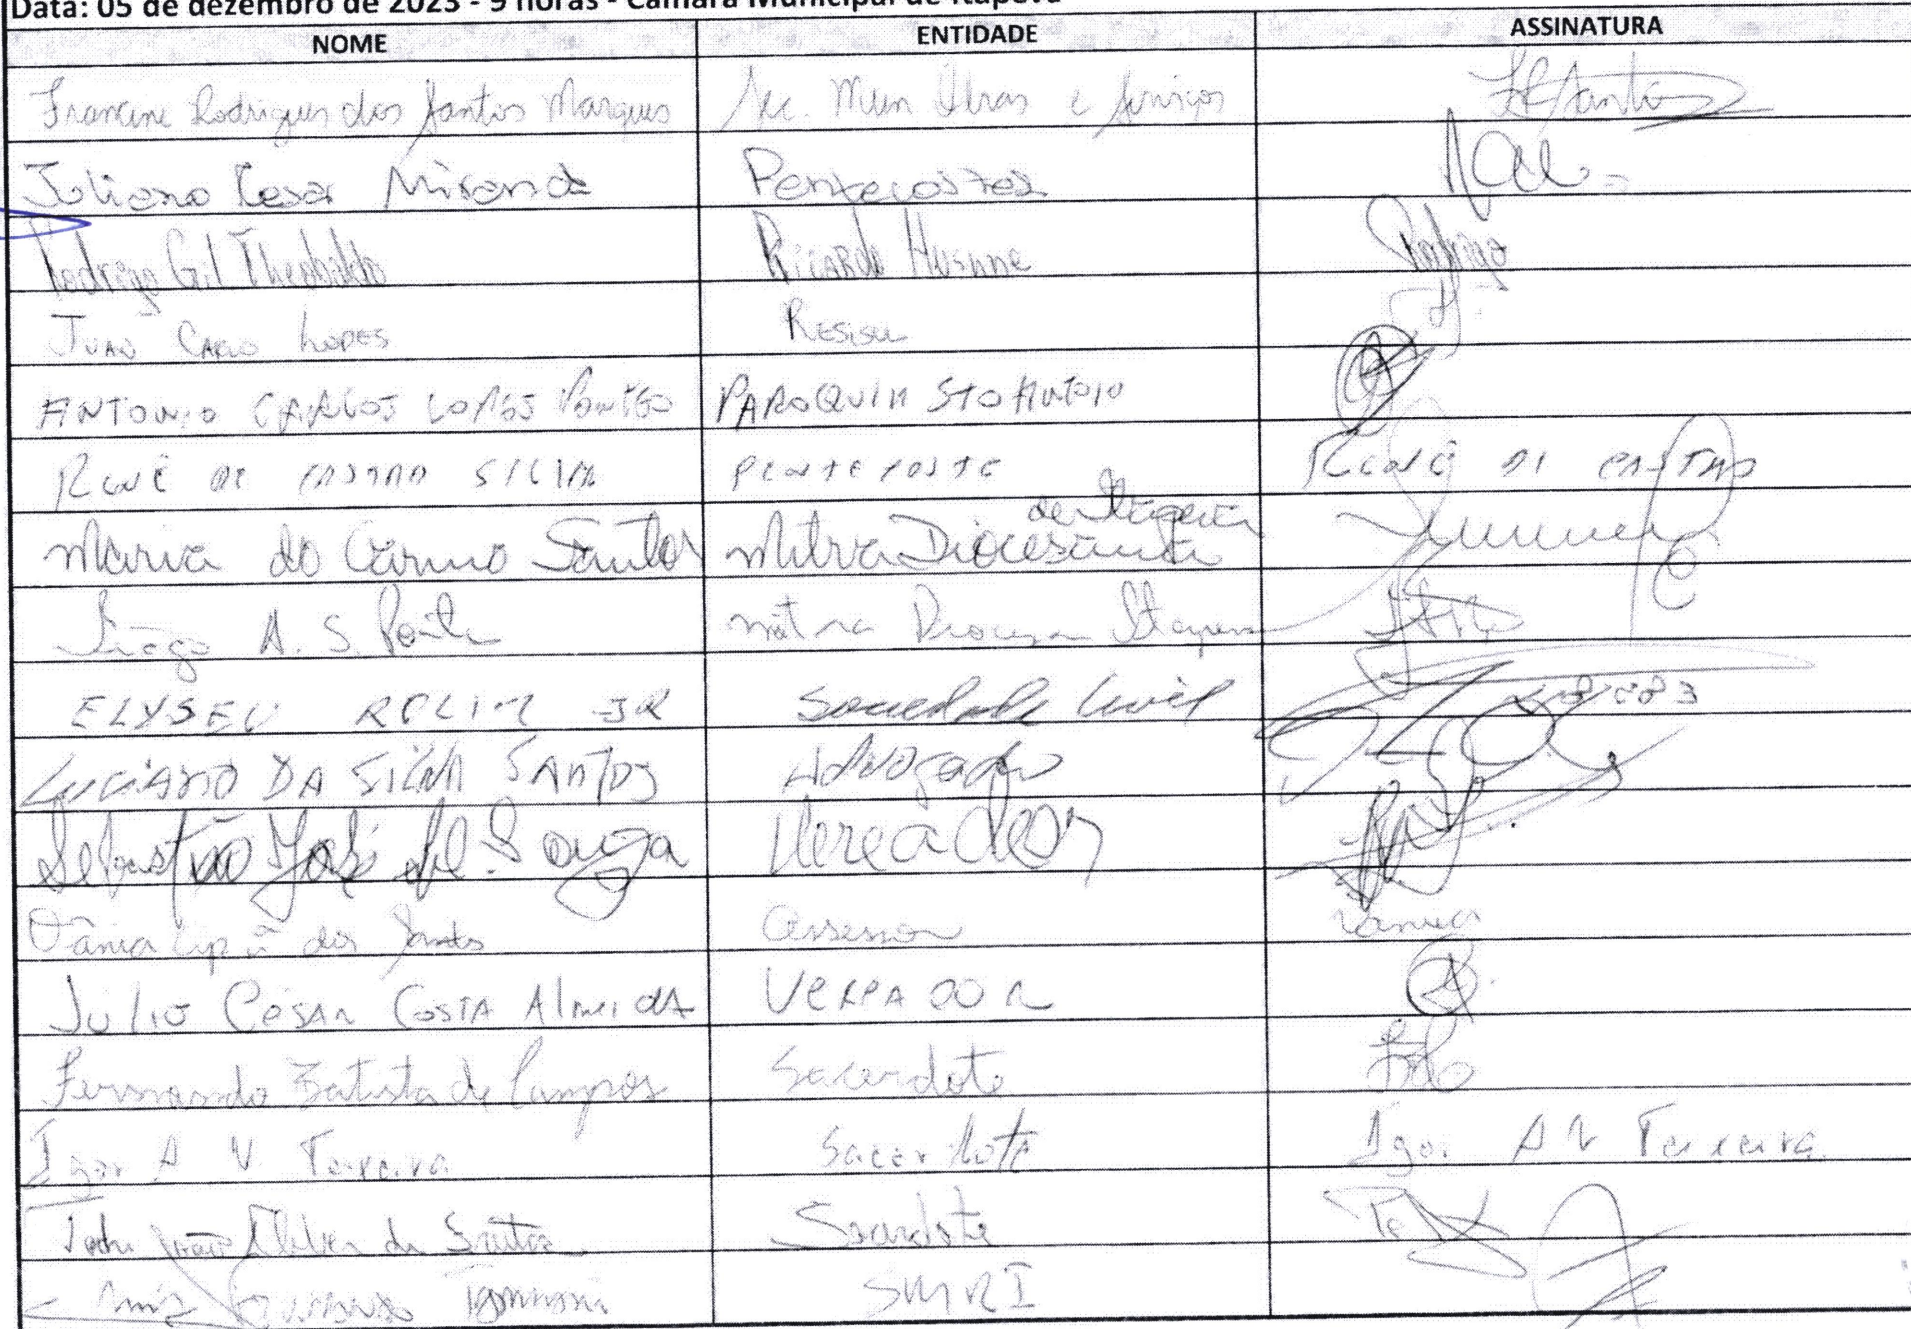 Data: 05 de dezembro de 2023 - 9 horas - Câmara Municipal de Itapeva
NOME ENTIDADE ASSINATURA
Francine Rodrigues dos Santos Marques Sec. Mun Obras e Serviços
Juliano Cesar Miranda Pentecostes
Rodrigo Gil Theobaldo Ricardo Rodrigo
Lopes
ANTONIO CARLOS LOPES PAROQUIA STO ANTONIO
RENÊ DE CASTRO SILVA PENTECOSTE RENÊ DE CASTRO
Maria do Carmo Santos Mitra Diocesana de Itapeva
Tiago A. S. Mitra Diocesana Itapeva
ELYSEU ROLIM JR Sociedade Civil
LUCIANO DA SILVA SANTOS Advogado
Sebastião José de Souza Vereador
Vânia Apª dos Santos Assessora Vânia
Júlio César Costa Almeida VEREADOR
Fernando Batista de Campos Sacerdote
Igor A V Teixeira Sacerdote Igor A V Teixeira
João dos Santos Sacerdote
SMRI